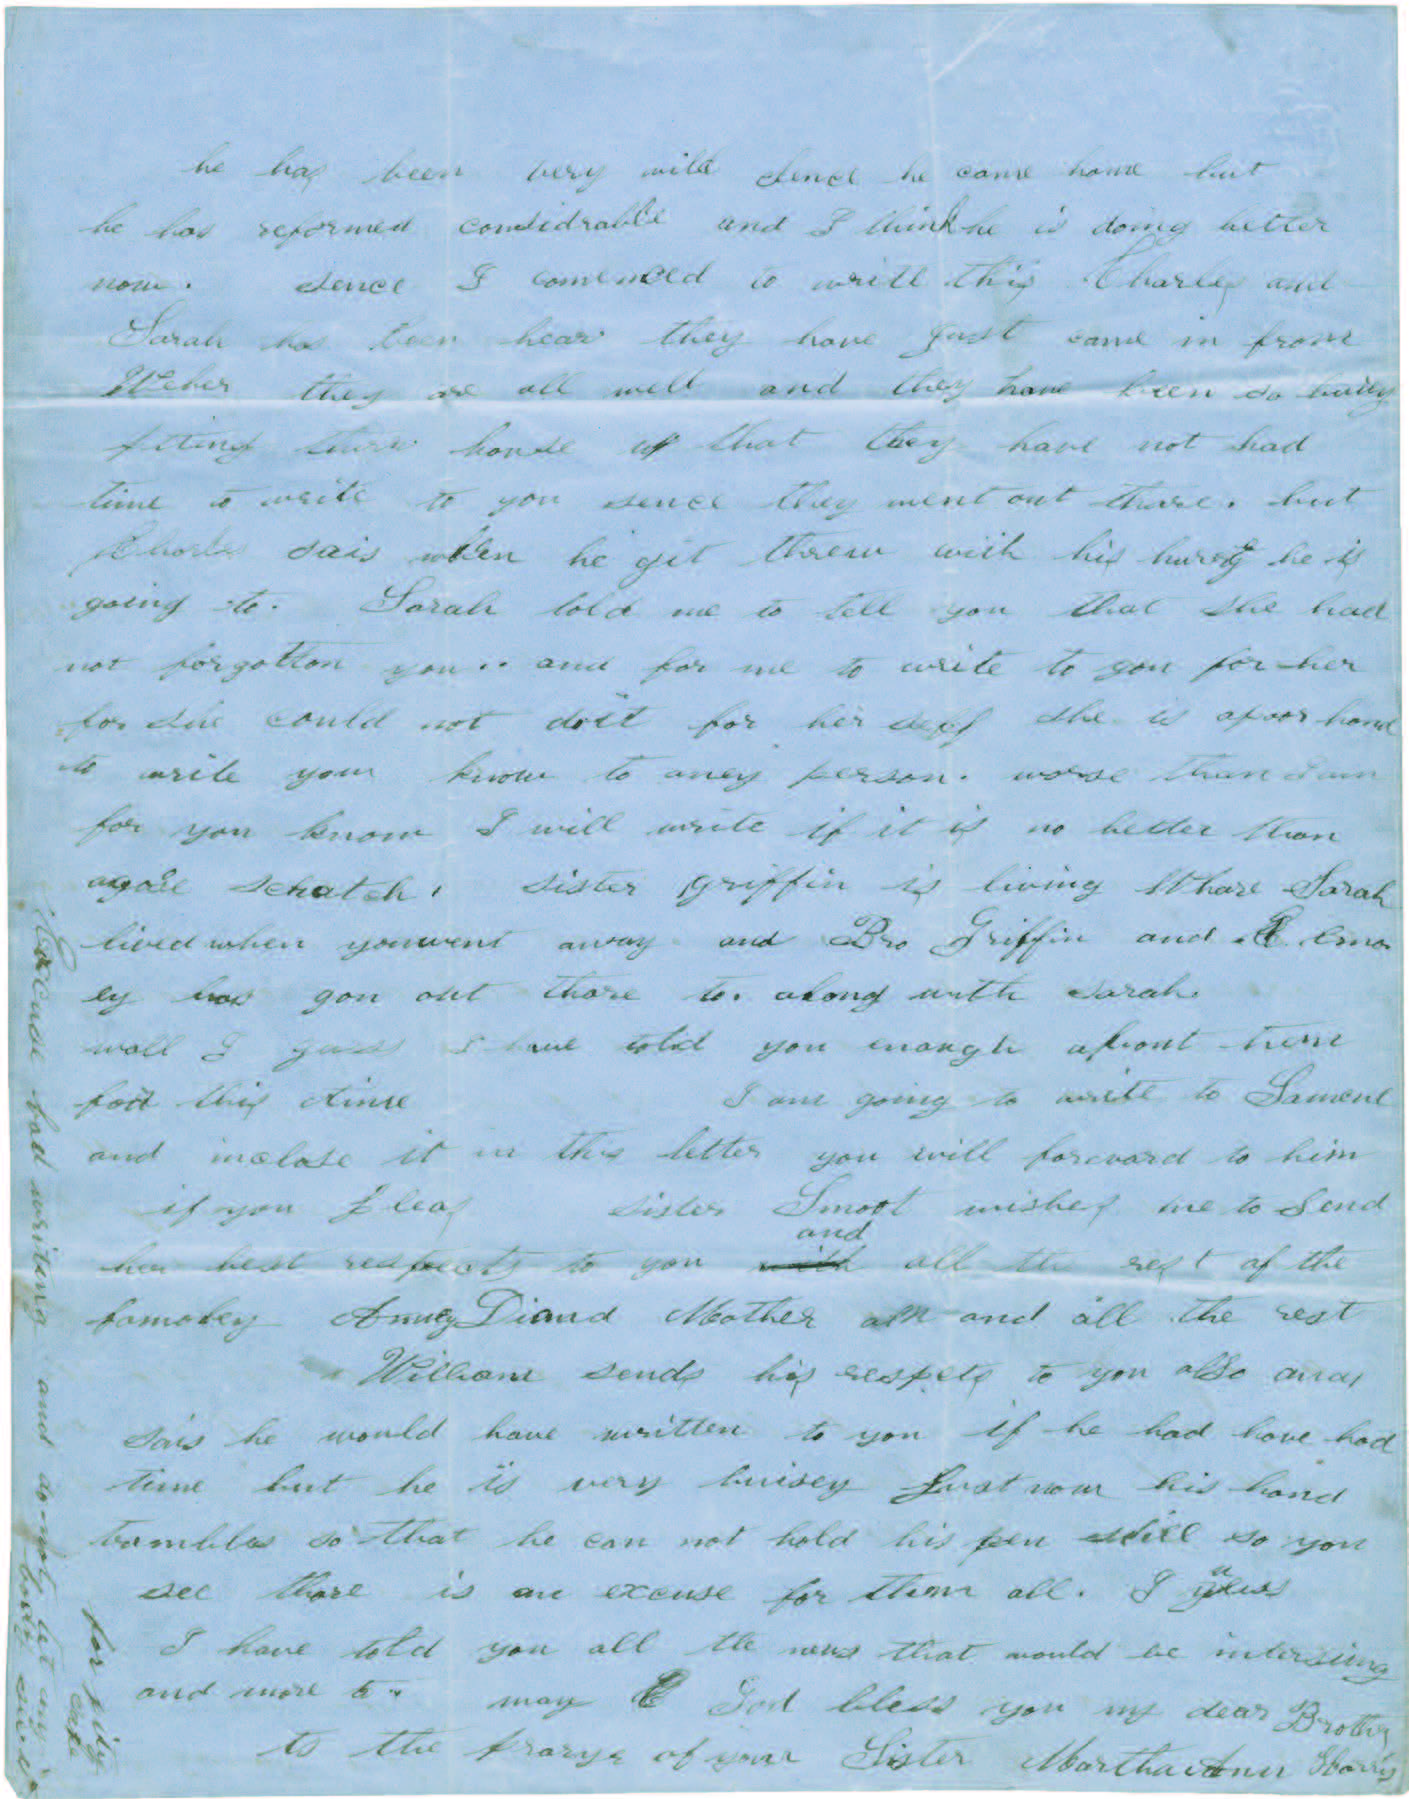 he has been very wild sence he came home but
he has reformed considrable and I think he is doing better
now. sence I comenced to write this Charles and
Sarah has been hear they have just came in from
Weber they are all well and they have been so buisy
fiting thare house up that they have not had
time to write to you sence they went out thare. but
Charles sais when he git threw with his hurey he is
going to. Sarah told me to tell you that she had
not forgotton you.. and for me to write to you for her
for she could not doit for her self she is apoor hand
to write your know to aney person. worse than I am
for you know I will write if it is no better than
scratch. sister griffin is living Whare Sarah
lived when youwent away and Bro Griffin and
ey has gon out thare to. along with sarah.
well I guess I have told you enough about them
for this time I am going to write to Samuel
and inclose it in this letter you will forward to him
if you pleas sister Smoot wishes me to send
and
her best respects to you with all the rest of the
famoley Anney Diana Mother and all the rest
William sends his respets to you also
sais he would have written to you if he had have had
time but he is very buisey Just now his hand
trambles so that he can not hold his pen still so you
see thare is an excuse for them all. I guess
I have told you all the news that would be intersting
and more to. may God bless you my dear Brother
is the prayr of your Sister Martha Ann Harris
Excuse bad writing and do not let any
body see it
for pity
sake